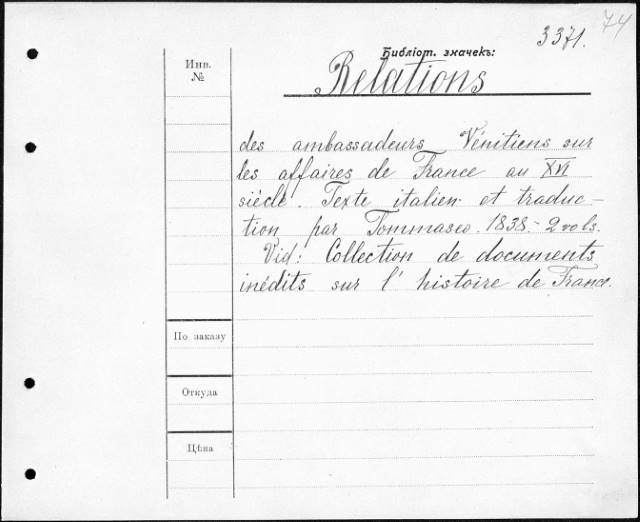 74
3371.
Библіот. значекъ:
Инв.
№
Relations
des ambassadeurs Vénitiens sur
les affaires de France au XVI
siècle. Texte italien et traduc-
tion par Tommaseo. 1838.- 2 vols.
Vid: Collection de documents
inédits sur l'histoire de France.
По заказу
Откуда
Цѣна